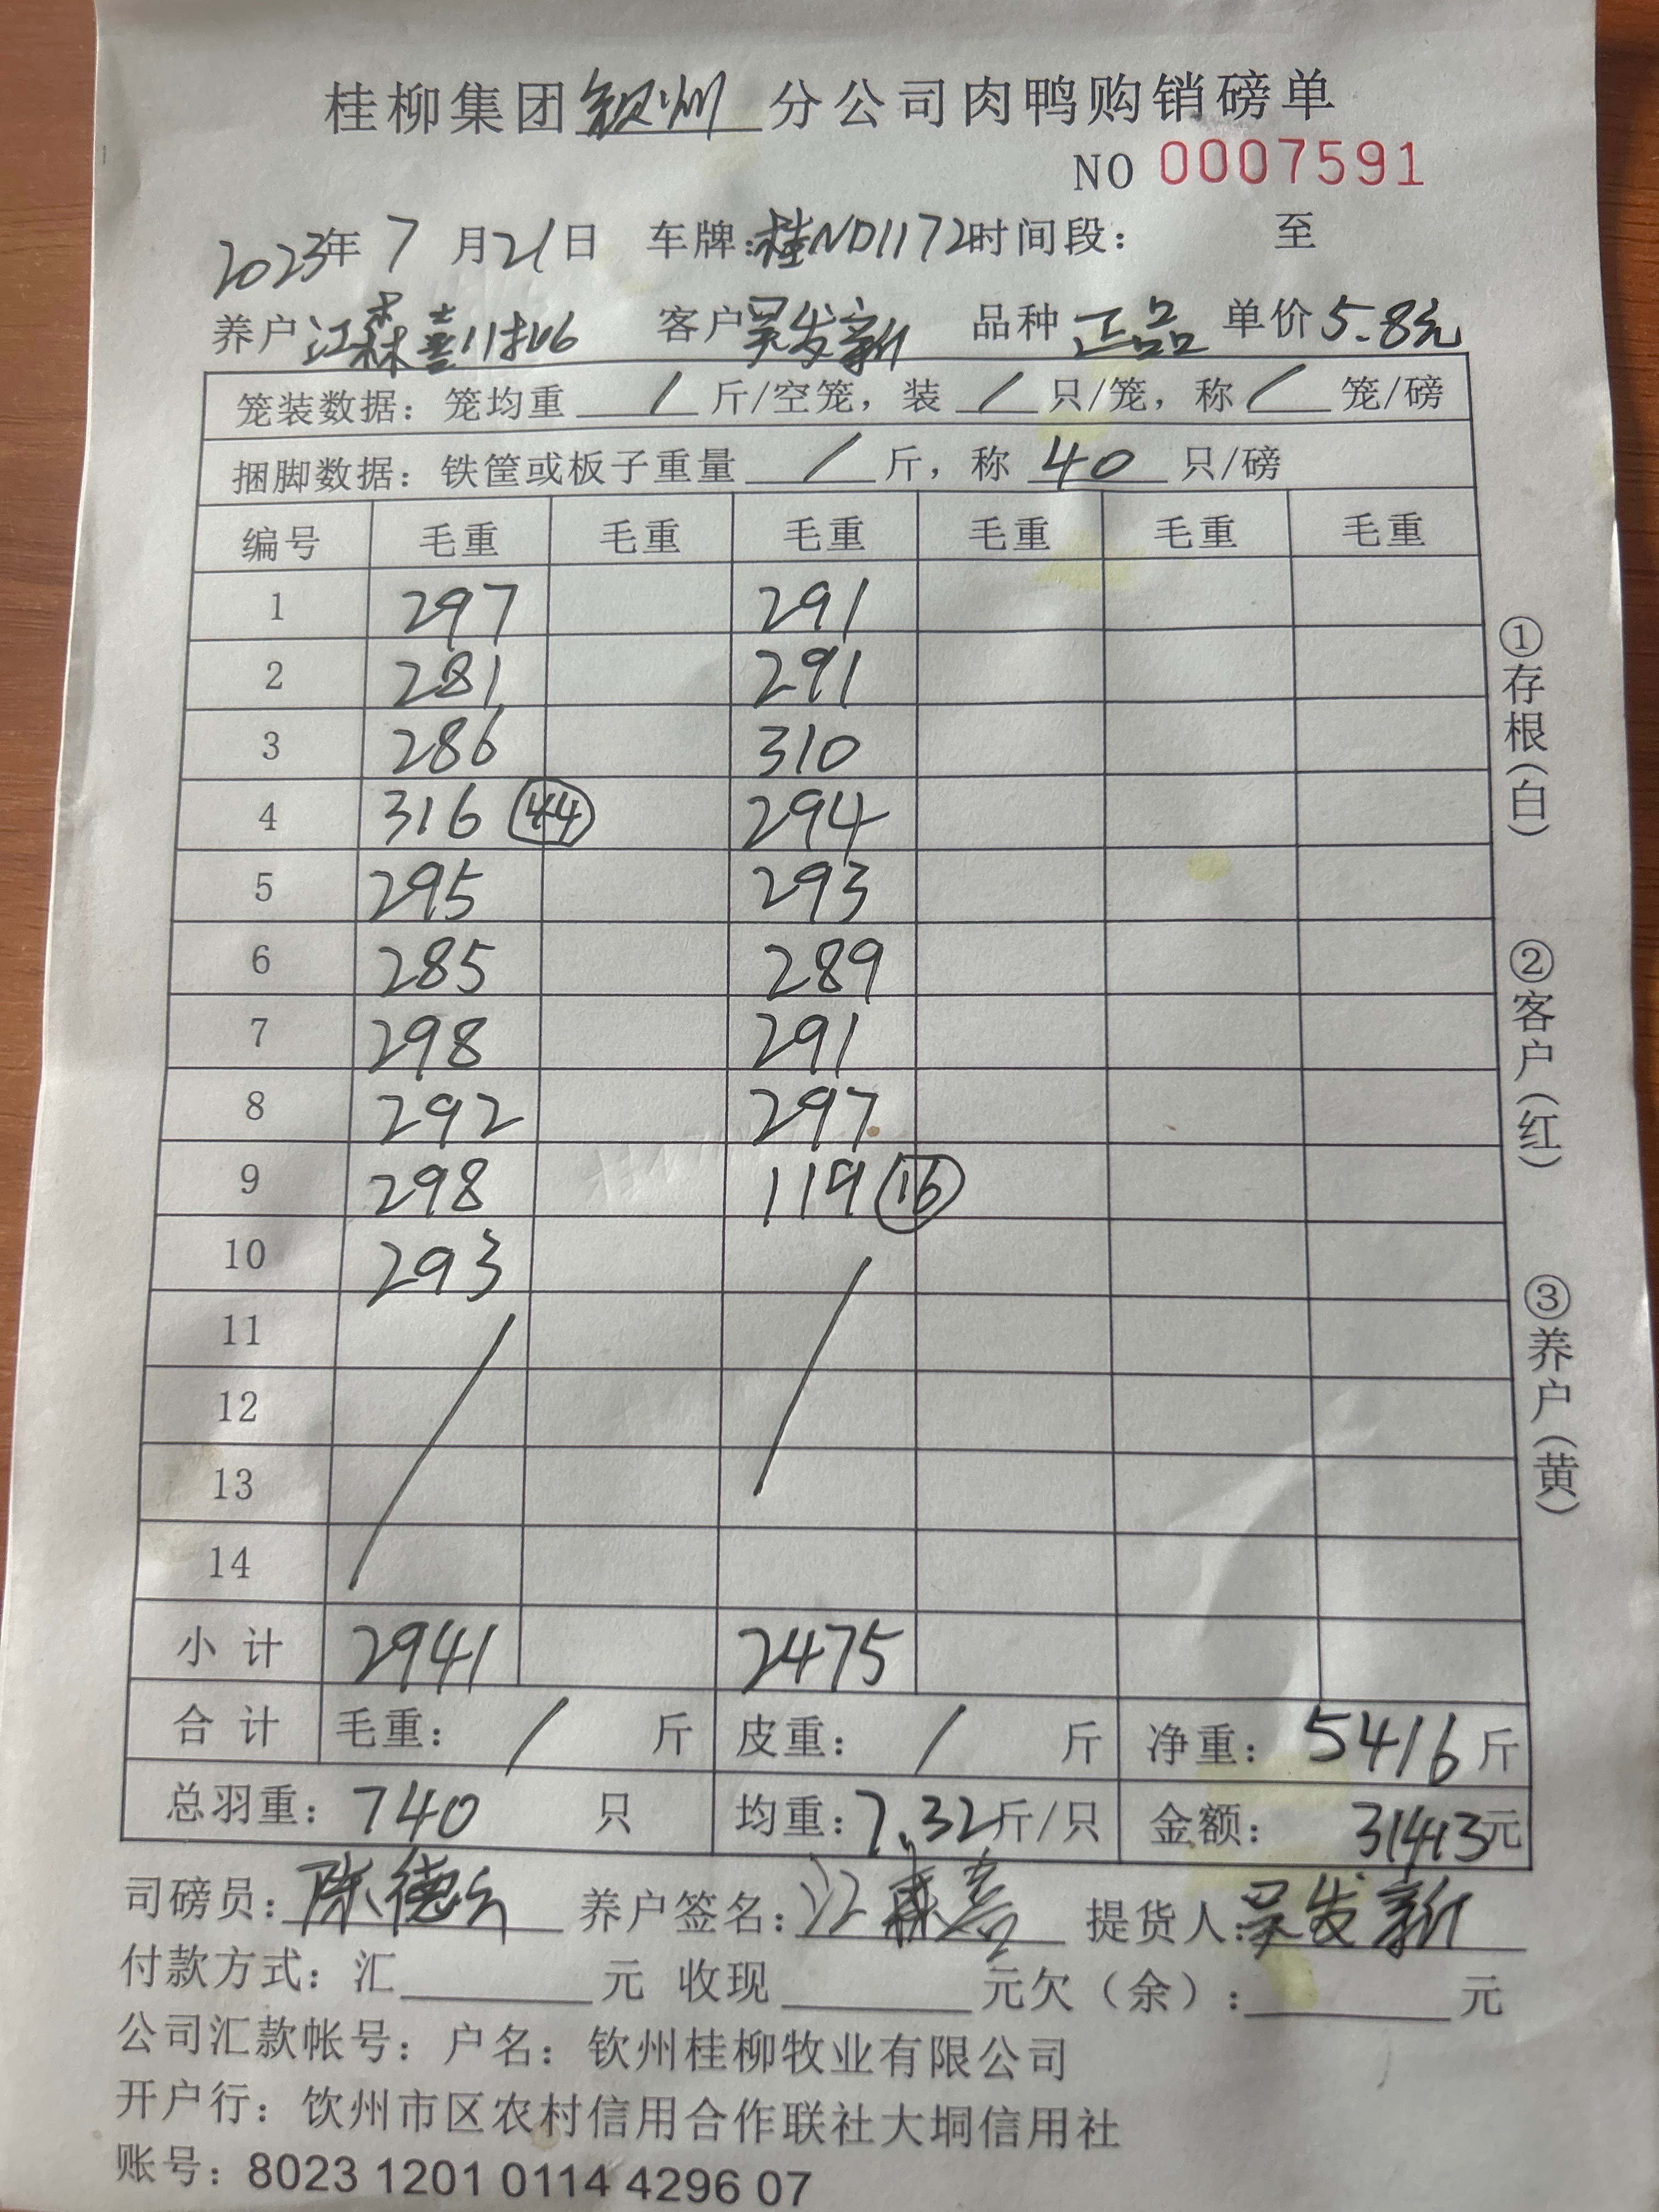 桂柳集团钦州分公司肉鸭购销磅单
NO 0007591
2023年7月21日 车牌:桂ND1172时间段: 至
养户江森喜 客户吴发新 品种正品 单价5.8元
笼装数据: 笼均重 / 斤/空笼, 装 / 只/笼, 称 / 笼/磅
捆脚数据: 铁筐或板子重量 / 斤, 称 40 只/磅
编号 毛重 毛重 毛重 毛重 毛重 毛重
1 297 291
2 281 291
3 286 310
4 316 (44) 294
5 295 293
6 285 289
7 298 291
8 292 297
9 298 119 (16)
10 293
11
12
13
14
小计 2941 2475
合计 毛重: / 斤 皮重: / 斤 净重: 5416 斤
总羽重: 740 只 均重: 7.32斤/只 金额: 31413元
司磅员: 陈德 养户签名: 江森喜 提货人: 吴发新
付款方式: 汇 元 收现 元欠(余): 元
公司汇款帐号: 户名: 钦州桂柳牧业有限公司
开户行: 饮州市区农村信用合作联社大垌信用社
账号: 8023 1201 0114 4296 07
①存根(白) ②客户(红) ③养户(黄)